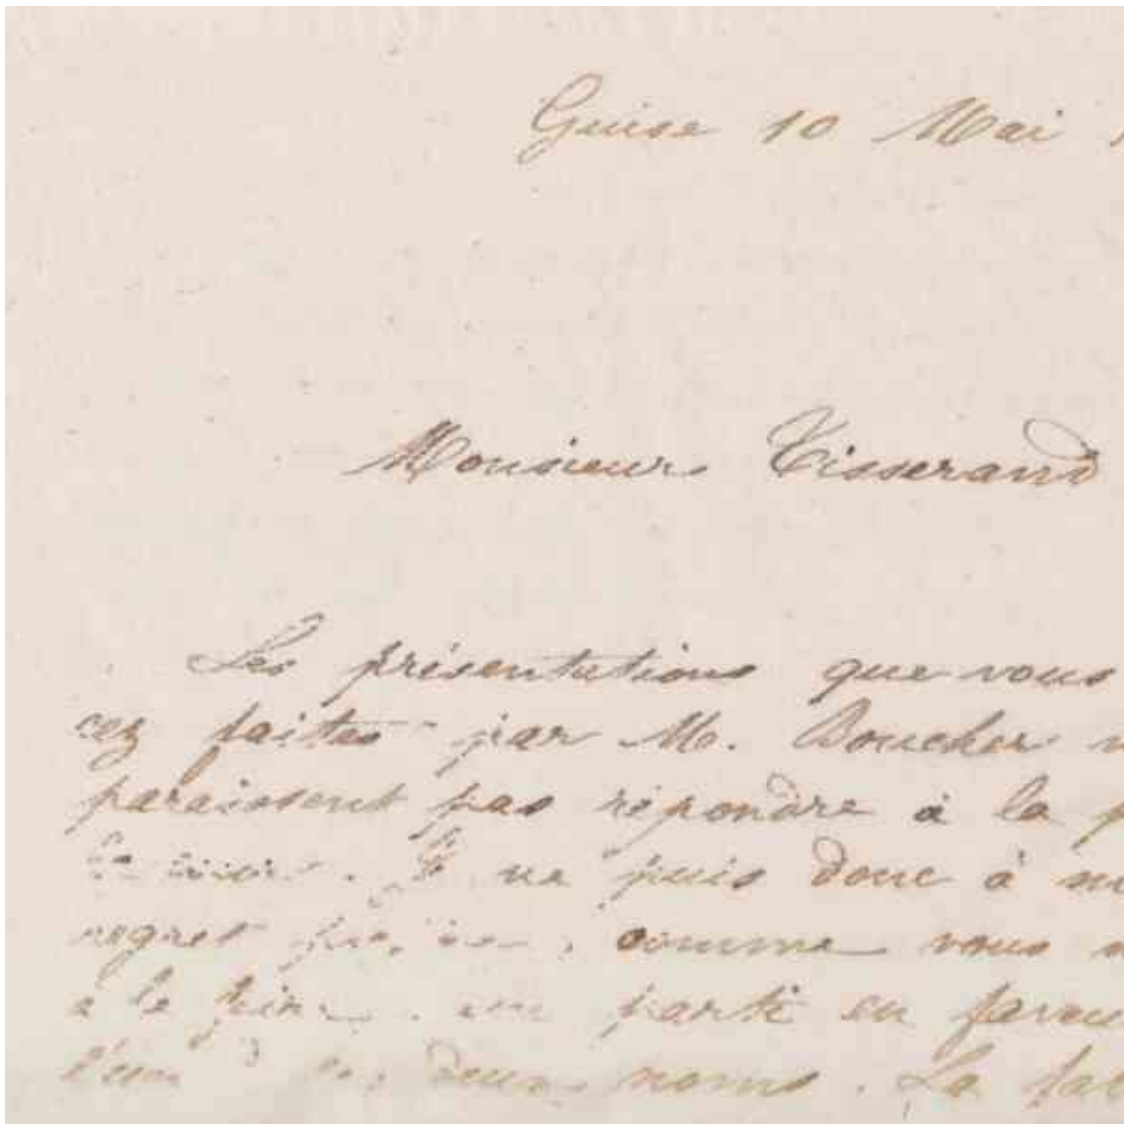 Guise 10 Mai
Monsieur Tisserand
Les présentations que vous
cez faites par M. Boucher
paraissent pas répondre à la
ne puis donc à
regret comme vous
a la parti en faveu
deux noms. La